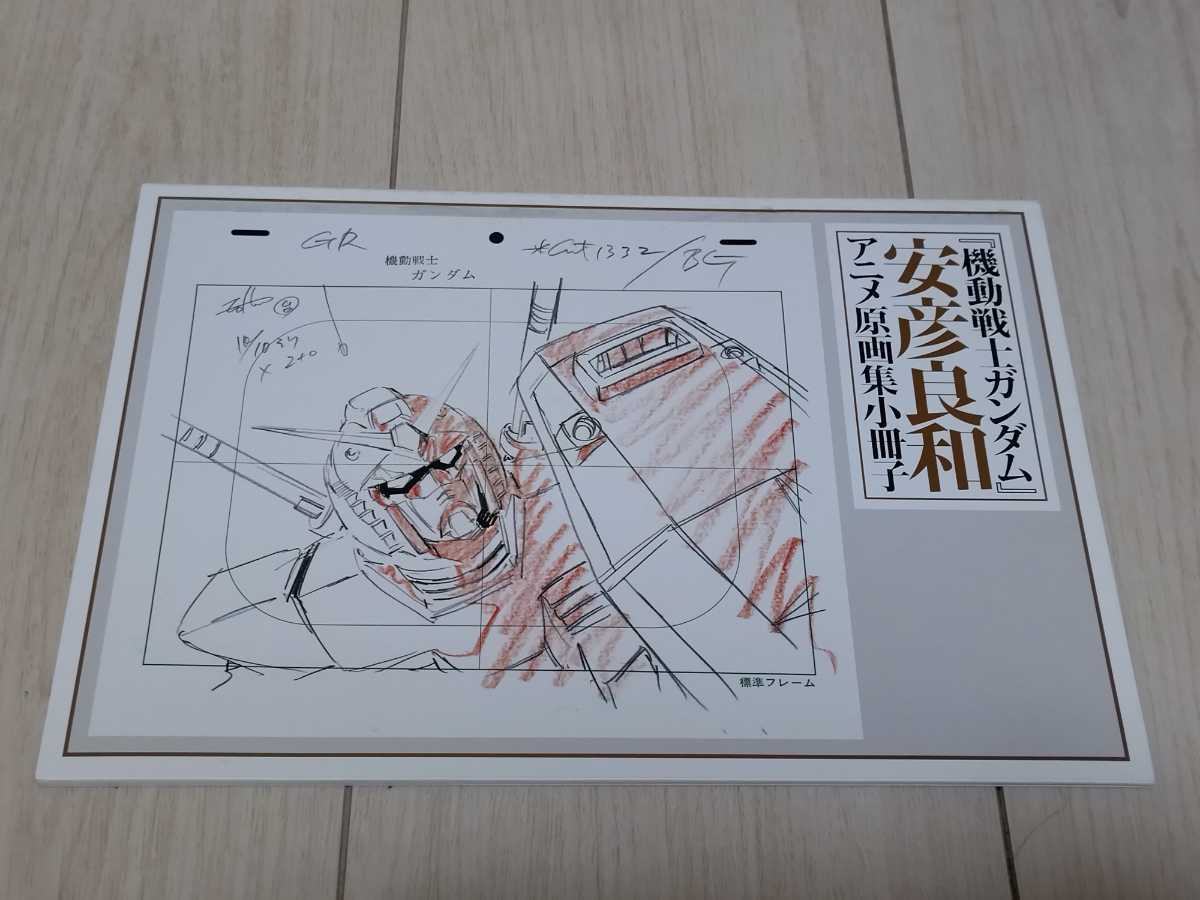 GR
*Cut 1332/BG
機動戦士
ガンダム
10/10
標準フレーム
『機動戦士ガンダム』
安彦良和
アニメ原画集小冊子